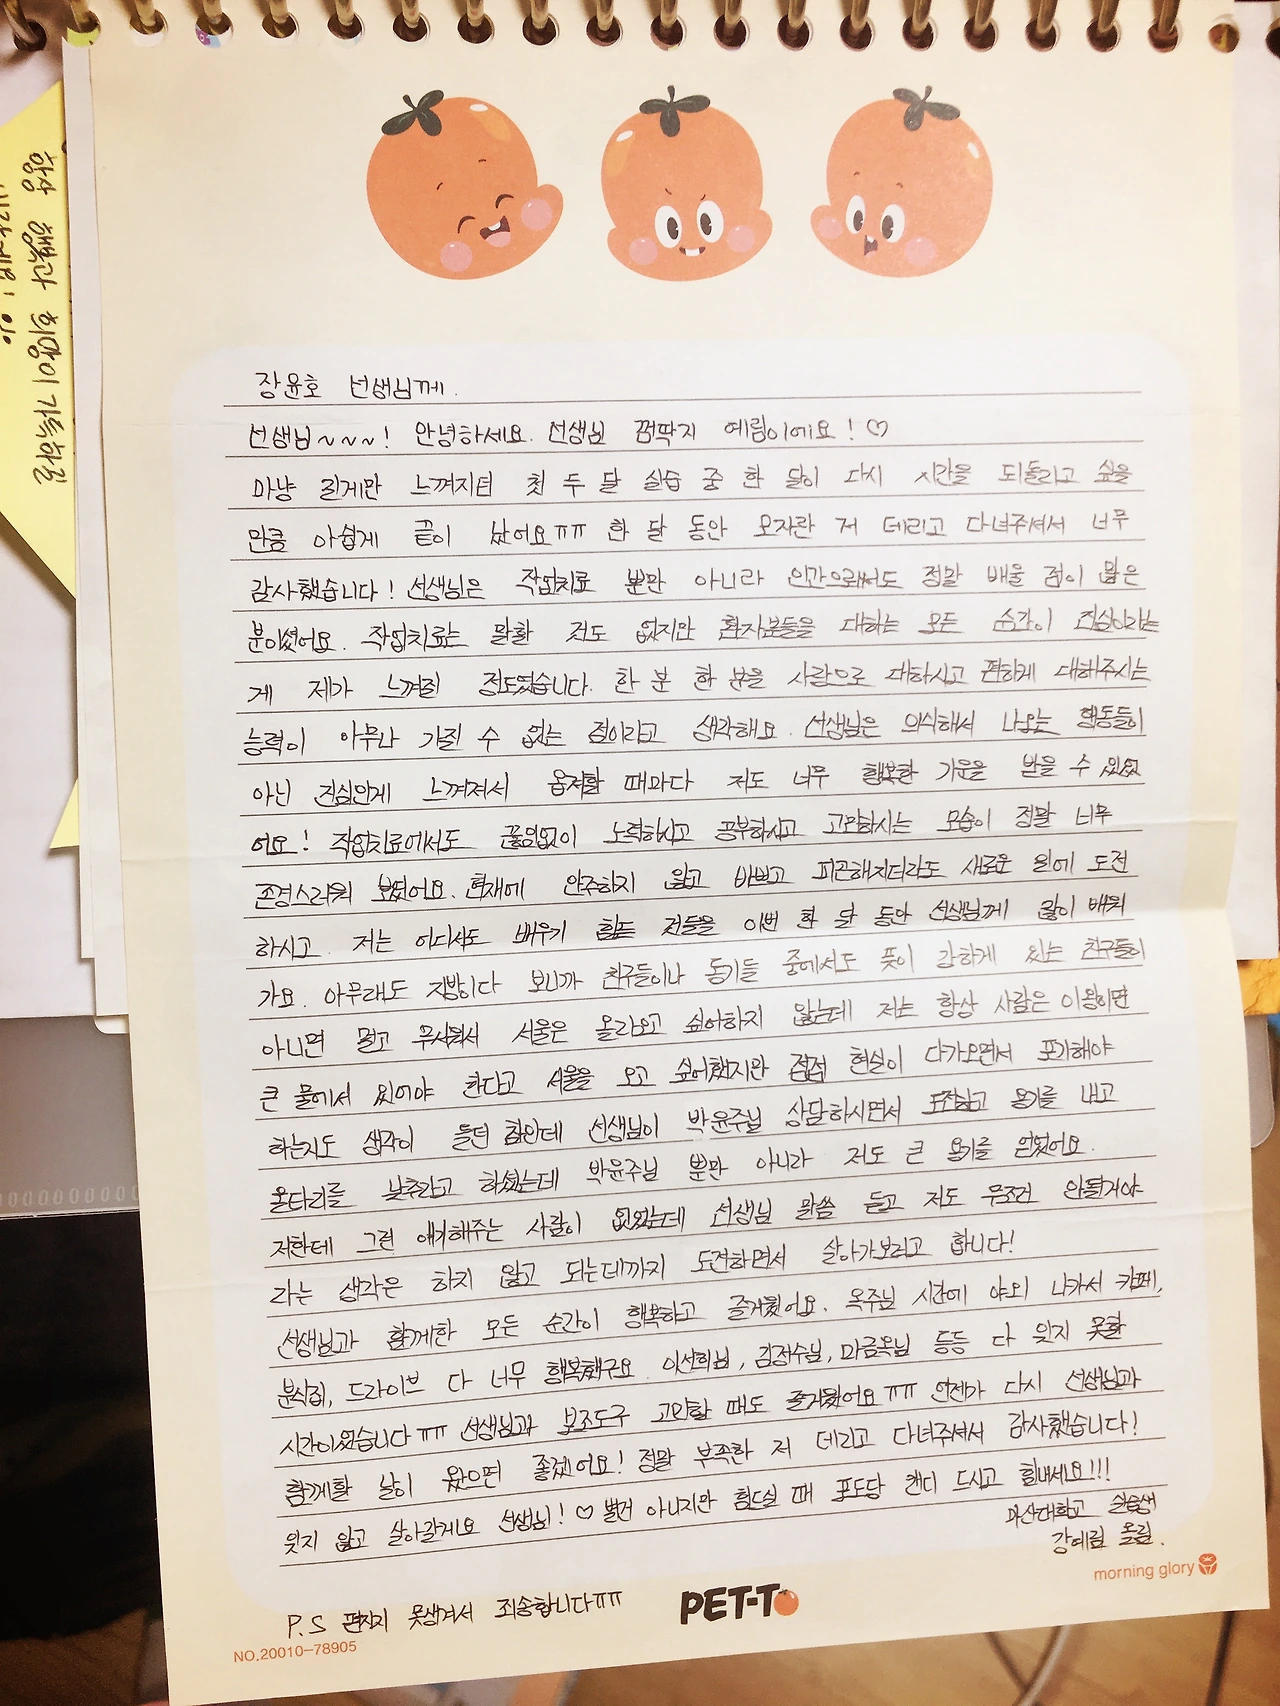 항상 행복과 희망이 가득하길
장윤호 선생님께.
선생님~~~! 안녕하세요. 선생님 껌딱지 예림이에요! ♡
마냥 길게만 느껴지던 첫 두 달 실습 중 한 달이 다시 시간을 되돌리고 싶을
만큼 아쉽게 끝이 났어요ㅠㅠ 한 달 동안 모자란 저 데리고 다녀주셔서 너무
감사했습니다! 선생님은 작업치료 뿐만 아니라 인간으로써도 정말 배울 점이 많은
분이셨어요. 작업치료는 말할 것도 없지만 환자분들을 대하는 모든 순간이 진심이라는
게 제가 느껴질 정도였습니다. 한 분 한 분을 사람으로 대하시고 편하게 대해주시는
능력이 아무나 가질 수 없는 점이라고 생각해요. 선생님은 의식해서 나오는 행동들이
아닌 진심인게 느껴져서 옵저할 때마다 저도 너무 행복한 기운을 받을 수 있었
어요! 작업치료에서도 끊임없이 노력하시고 공부하시고 고민하시는 모습이 정말 너무
존경스러워 보였어요. 현재에 안주하지 않고 바쁘고 피곤해지더라도 새로운 일에 도전
하시고. 저는 어디서도 배우기 힘든 것들을 이번 한 달 동안 선생님께 많이 배워
가요. 아무래도 지방이다 보니까 친구들이나 동기들 중에서도 뜻이 강하게 있는 친구들이
아니면 멀고 무서워서 서울은 올라오고 싶어하지 않는데 저는 항상 사람은 이왕이면
큰 물에서 있어야 한다고 서울을 오고 싶어했지만 점점 현실이 다가오면서 포기해야
하는지도 생각이 들던 참인데 선생님이 박윤주님 상담하시면서 도전하고 용기를 내고
울타리를 낮추라고 하셨는데 박윤주님 뿐만 아니라 저도 큰 용기를 얻었어요.
저한테 그런 얘기해주는 사람이 없었는데 선생님 말씀 듣고 저도 무조건 안될거야
라는 생각은 하지 않고 되는데까지 도전하면서 살아가보려고 합니다!
선생님과 함께한 모든 순간이 행복하고 즐거웠어요. 옥주님 시간에 야외 나가서 카페,
분식집, 드라이브 다 너무 행복했구요. 이선희님, 김정수님, 마금옥님 등등 다 잊지 못할
시간이었습니다ㅠㅠ 선생님과 보조도구 고민할 때도 즐거웠어요ㅠㅠ 언젠가 다시 선생님과
함께할 날이 왔으면 좋겠어요! 정말 부족한 저 데리고 다녀주셔서 감사했습니다!
잊지 않고 살아갈게요 선생님! ♡ 별건 아니지만 힘드실 때 포도당 캔디 드시고 힘내세요!!!
마산대학교 실습생
강예림 올림.
morning glory
P.S 편지지 못생겨서 죄송합니다ㅠㅠ
PET-TO
NO.20010-78905